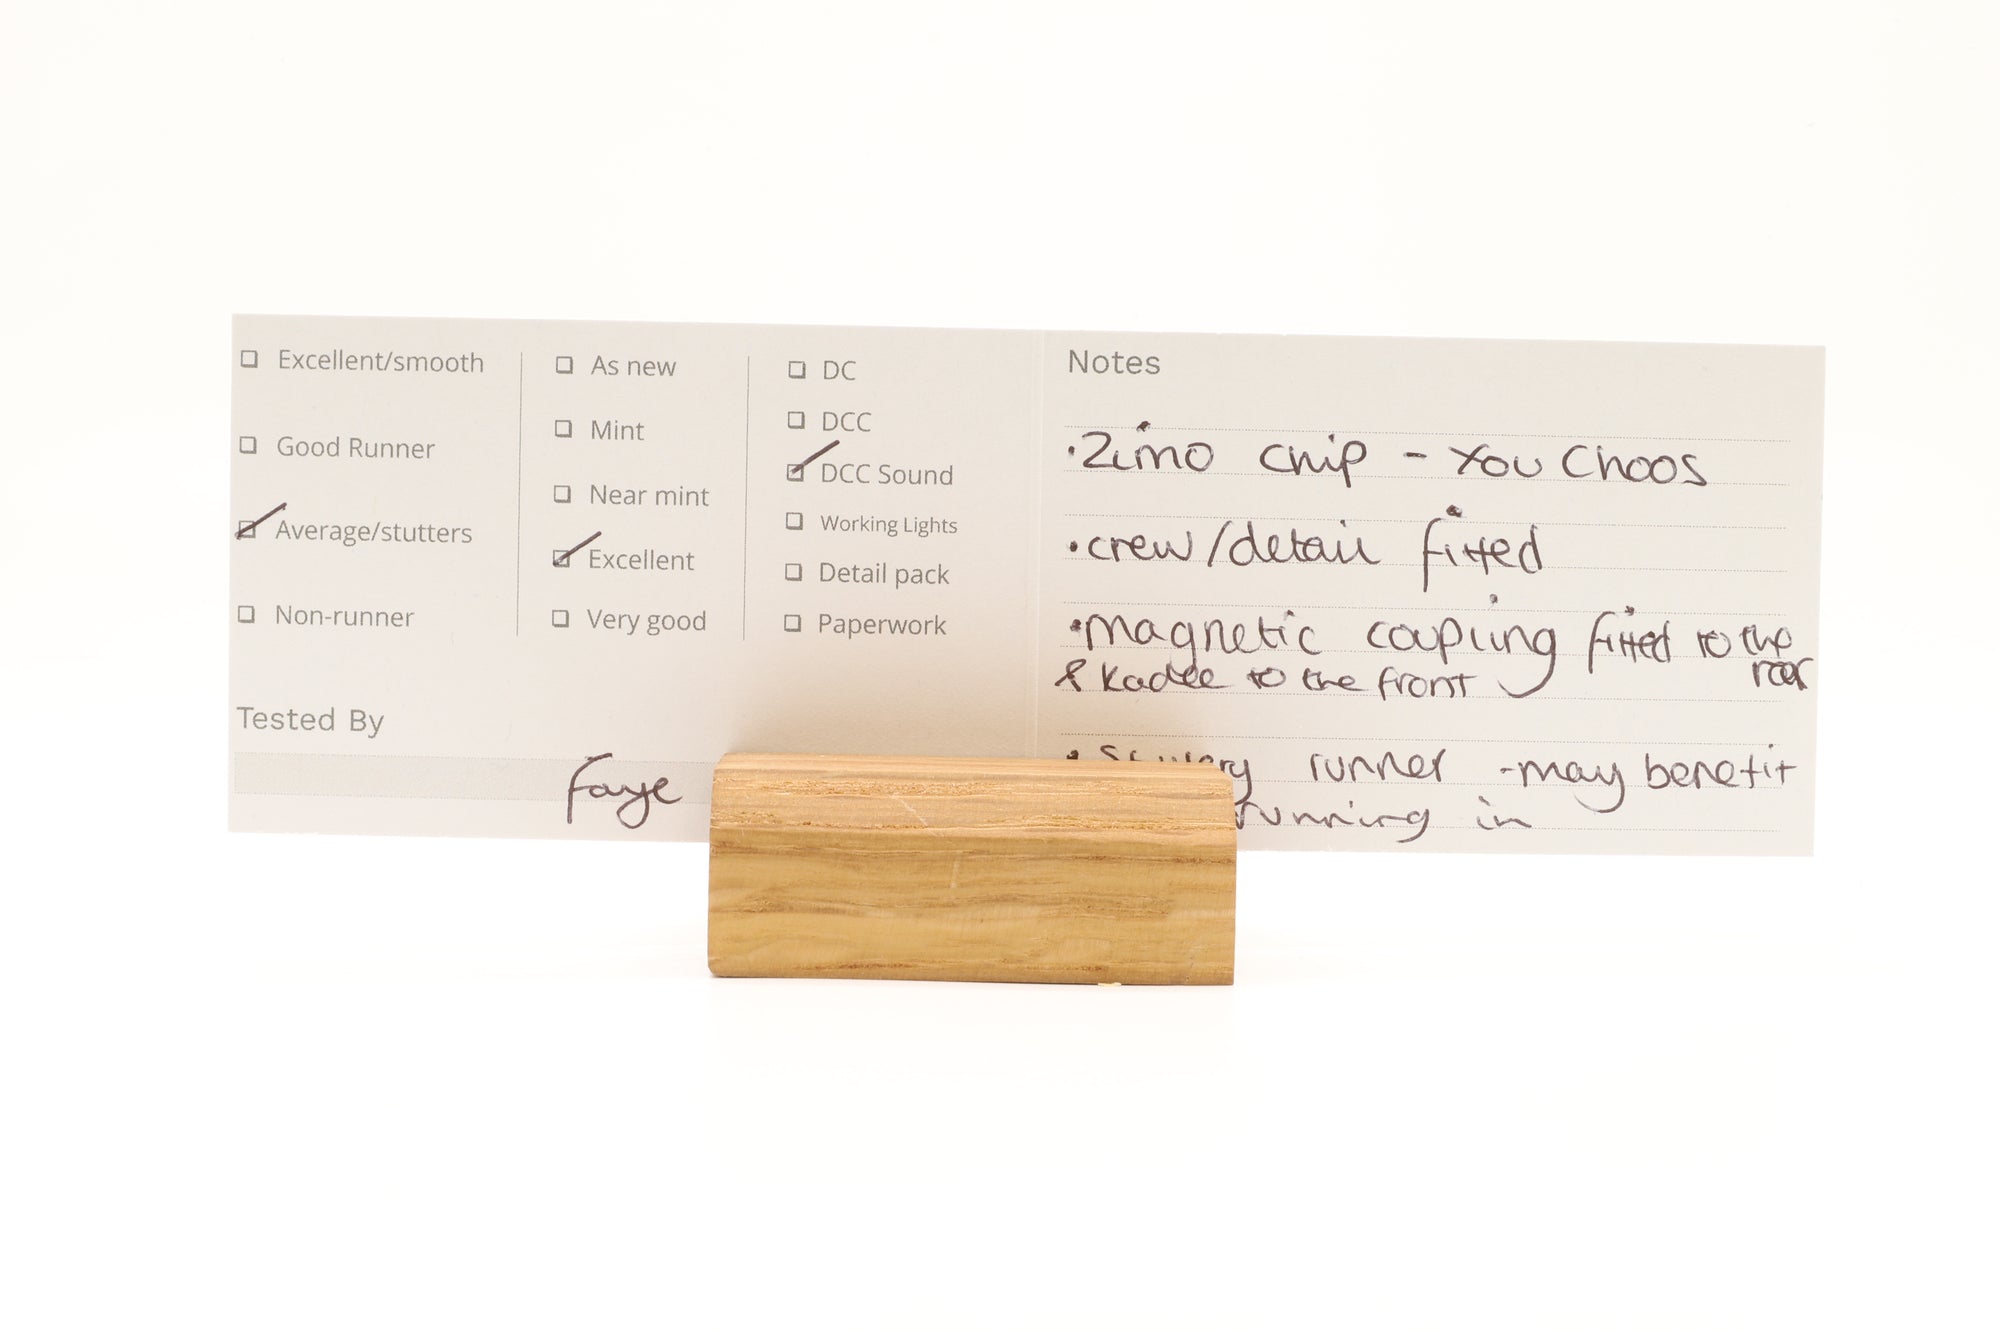 Excellent/smooth
Good Runner
Average/stutters
Non-runner
As new
Mint
Near mint
Excellent
Very good
DC
DCC
DCC Sound
Working Lights
Detail pack
Paperwork
Tested By
Faye
Notes
• Zimo chip - You Choos
• crew/detail fitted
• magnetic coupling fitted to the
rear
& Kadee to the front
• runner - may benefit
running in